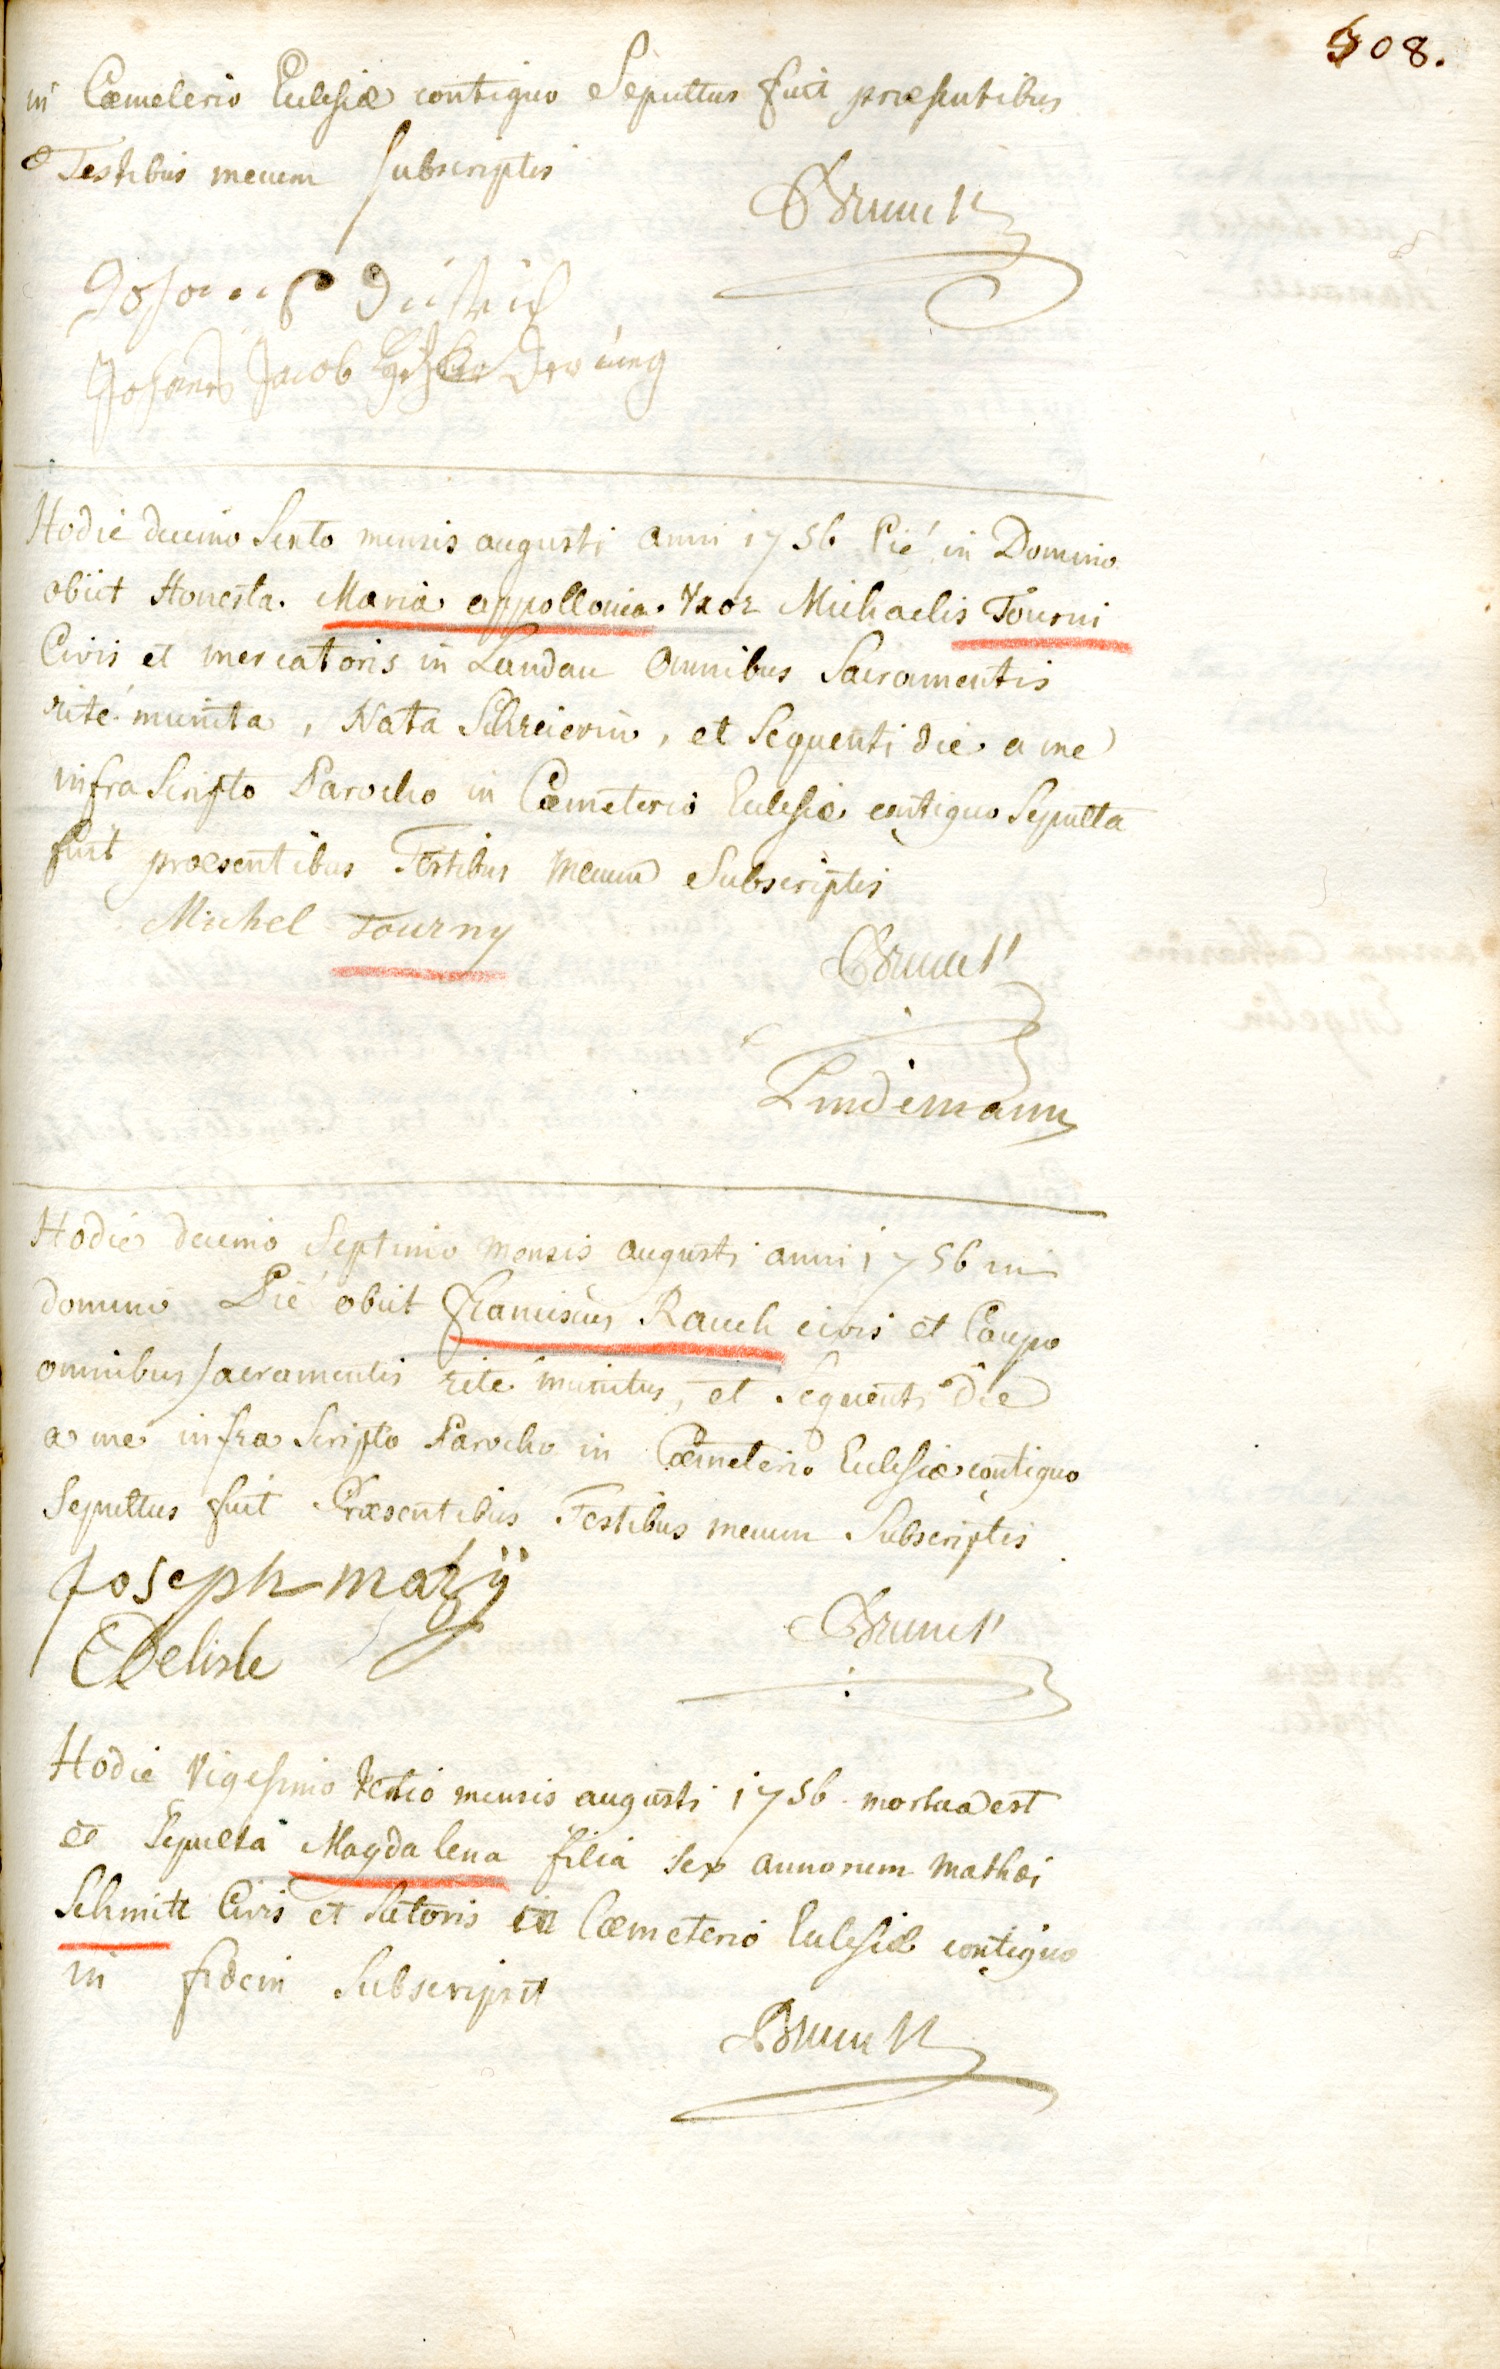 508.
in Cœmeterio Eclesiæ contiguo Sepultus fuit præsentibus
Testibus mecum subscriptis
Brunck
Johannes Dietrich
Johannes Jacob
Hodie decimo Sexto mensis augusti anni 1756 Pié in Domino
obiit Honesta Maria appollonia Uxor Michaelis Tourni
Civis et mercatoris in Landau Omnibus Sacramentis
rité munita, Nata Schreierin, et Sequenti die a me
infra Scripto Parocho in Cœmeterio Eclesiæ contiguo Sepulta
fuit præsentibus Testibus mecum Subscriptis
Michel Tourny
Brunck
Lindemann
Hodie decimo Septimo mensis augusti anni 1756 in
domino Pié obiit Franciscus Rauch civis et Caupo
omnibus sacramentis rité munitus, et Sequenti Die
a me infra Scripto Parocho in Cœmeterio Eclesiæ contiguo
Sepultus fuit Præsentibus Testibus mecum Subscriptis
Joseph mazÿ
Brunck
Delisle
Hodie Vigesimo tertio mensis augusti 1756 mortua est
et Sepulta Magdalena filia sex annorum mathæi
Schmitt Civis et Sutoris in Cœmeterio Eclesiæ contiguo
in fidem Subscripsit
Brunck